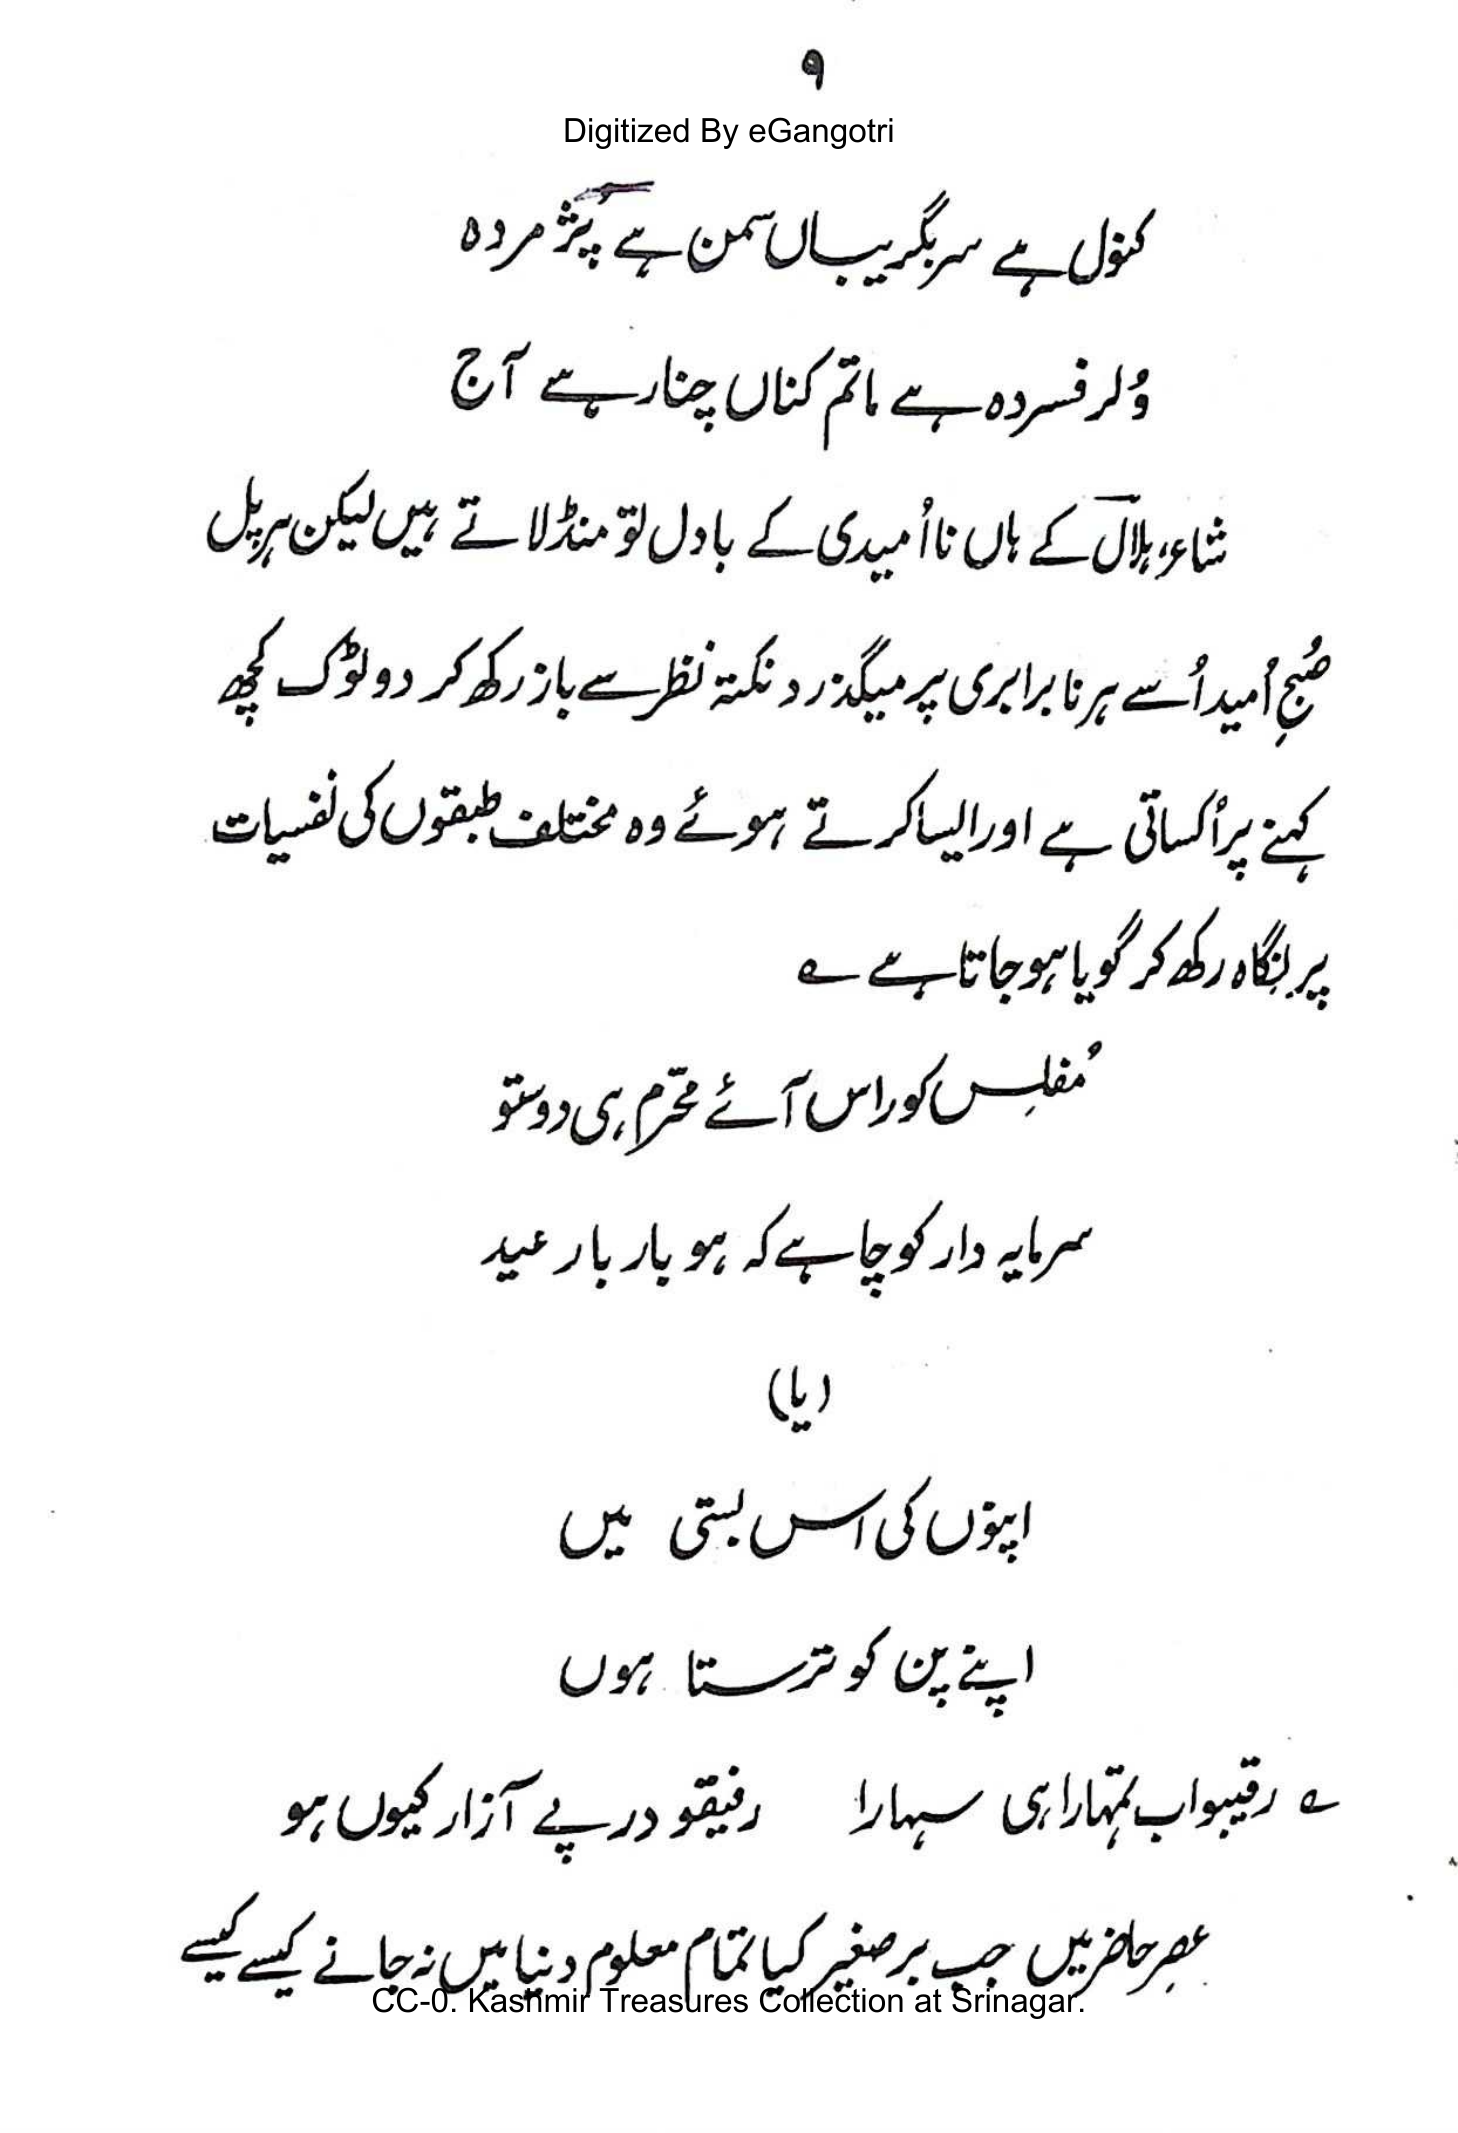 ۹
Digitized By eGangotri
کنول ہے سربگریباں سمن ہے پژمردہ
وُلر فسردہ ہے ماتم کناں چنار ہے آج
شاعر ہلالؔ کے ہاں نااُمیدی کے بادل تو منڈلاتے ہیں لیکن ہر پل
صُبحِ اُمید اُسے ہر نابرابری پر میگذرد نکتہ نظر سے باز رکھ کر دو ٹوک کچھ
کہنے پر اُکساتی ہے اور ایسا کرتے ہوئے وہ مختلف طبقوں کی نفسیات
پر نِگاہ رکھ کر گویا ہو جاتا ہے ؎
مُفلِس کو راس آئے محرّم ہی دوستو
سرمایہ دار کو چاہے کہ ہو بار بار عید
(یا)
اپنوں کی اس بستی میں
اپنے پن کو ترستا ہوں
؎ رقیبو اب تمہارا ہی سہارا رفیقو درپے آزار کیوں ہو
عصرِ حاضر میں جب برصغیر کیا تمام معلوم دنیا میں نہ جانے کیسے کیسے
CC-0. Kashmir Treasures Collection at Srinagar.